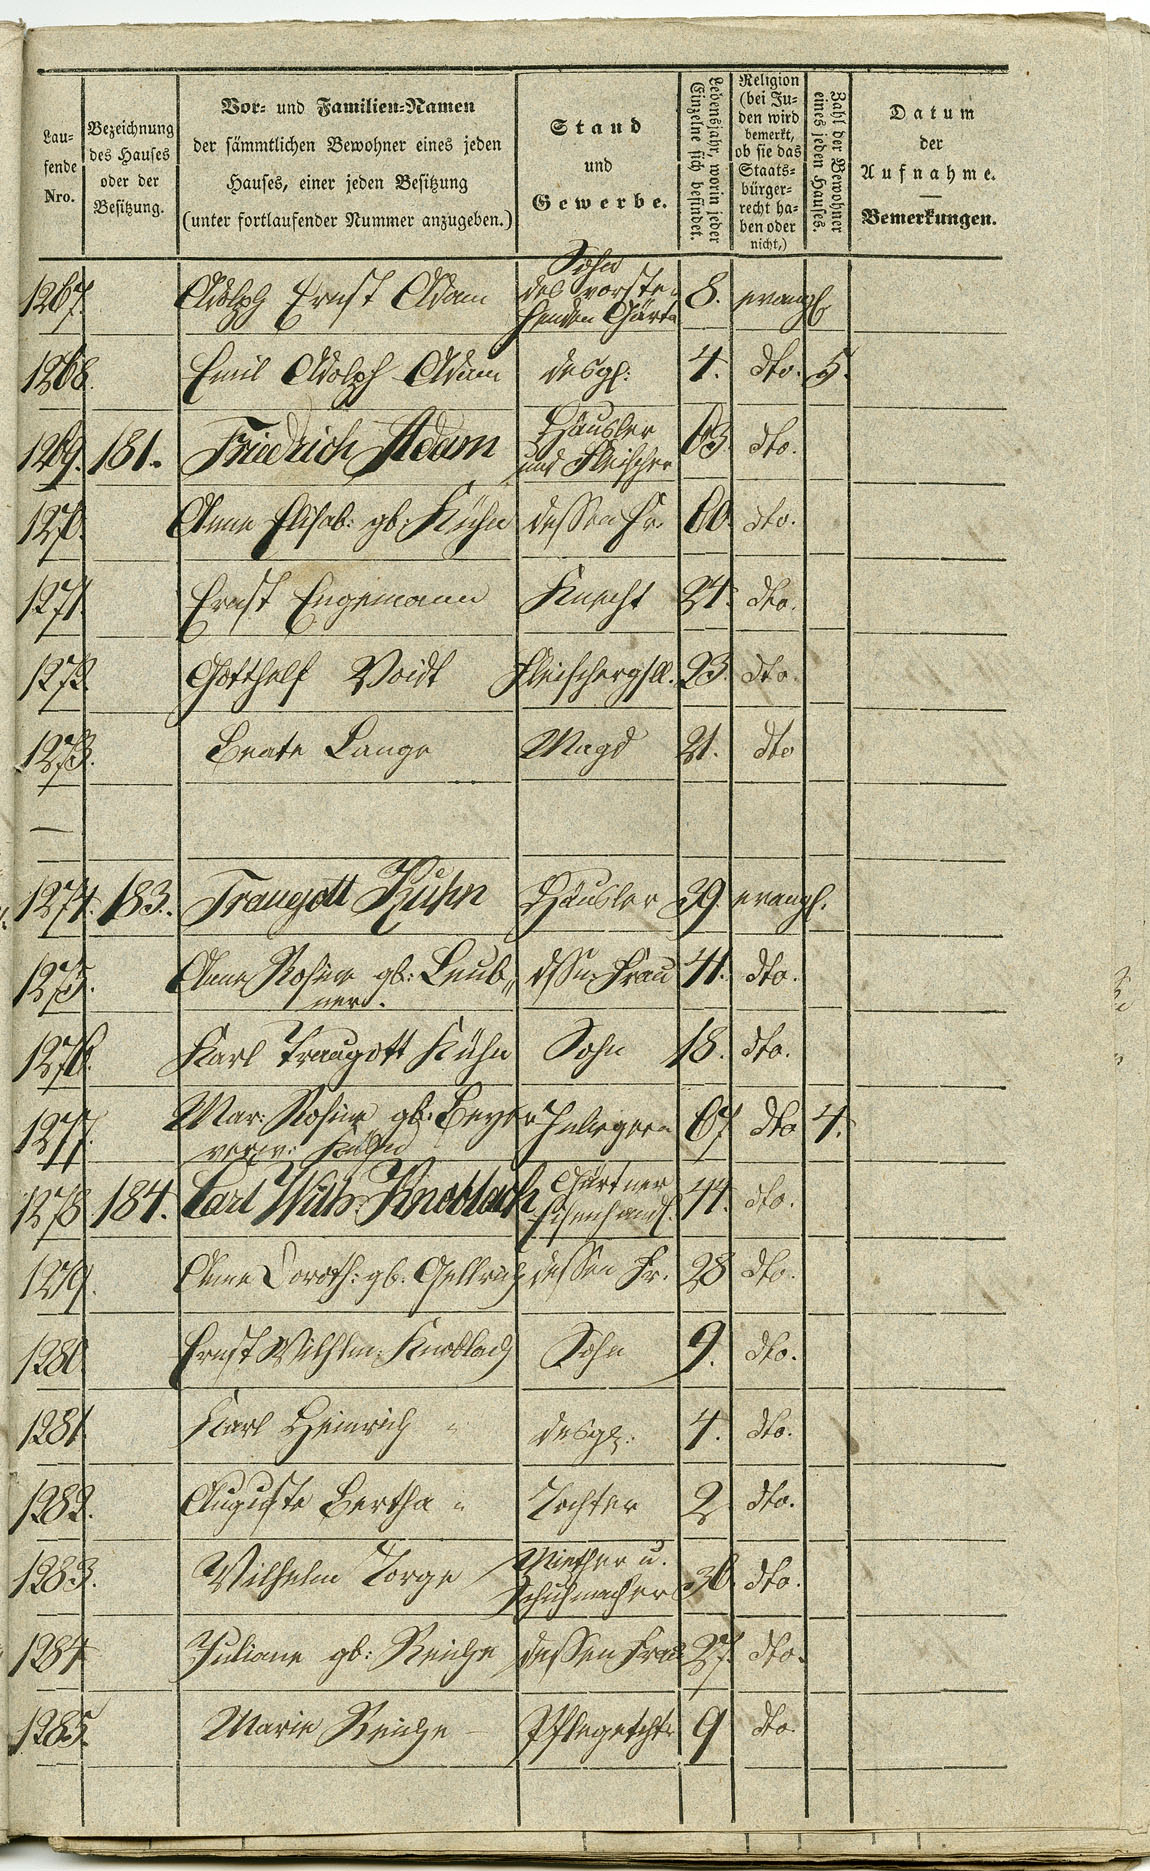 Lau-
fende
Nro.
Bezeichnung
des Hauses
oder der
Besitzung.
Vor- und Familien-Namen
der sämmtlichen Bewohner eines jeden
Hauses, einer jeden Besitzung
(unter fortlaufender Nummer anzugeben.)
Stand
und
Gewerbe.
Lebensjahr, worin jeder
Einzelne sich befindet.
Religion
(bei Ju-
den wird
bemerkt,
ob sie das
Staats-
bürger-
recht ha-
ben oder
nicht,)
Zahl der Bewohner
eines jeden Hauses.
Datum
der
Aufnahme.
Bemerkungen.
Sohn
1267. Adolph Ernst Adam des vorste- 8. evangl.
henden Gärtn
1268. Emil Adolph Adam desgl: 4. dto. 5.
1269. 181. Friedrich Adam Häusler 63. dto.
und Fleischer
1270. Anne Elisab: gb: Kühn dessen Fr. 60. dto.
1271. Ernst Engemann Knecht 24. dto.
1272. Gotthelf Voidt Fleischergsll. 23. dto.
1273. Beate Lange Magd 21. dto
—
1274. 183. Traugott Kühn Häusler 39. evangl.
1275. Anne Rosine gb: Leub„ dssn Frau 41. dto.
ner.
1276. Karl Traugott Kühn Sohn 18. dto.
1277. Mar: Rosine gb: Beyer 67. dto 4.
verw: Kühn
1278 184. Carl Wilh. Knoblach Gärtner 44. dto.
Eisenhandl.
1279. Anne Doroth: gb. Gellrich dessen Fr. 28 dto.
1280 Ernst Wilhlm: Knoblach Sohn 9. dto.
1281. Karl Heinrich " desgl: 4. dto.
1282. Auguste Bertha " Tochter 2 dto.
1283. Wilhelm Torge Miether u. 36. dto.
Schuhmacher
1284 Juliane gb: Reiche dessen Frau 27. dto.
1285. Marie Reiche — Pflegetchtr 9 dto.